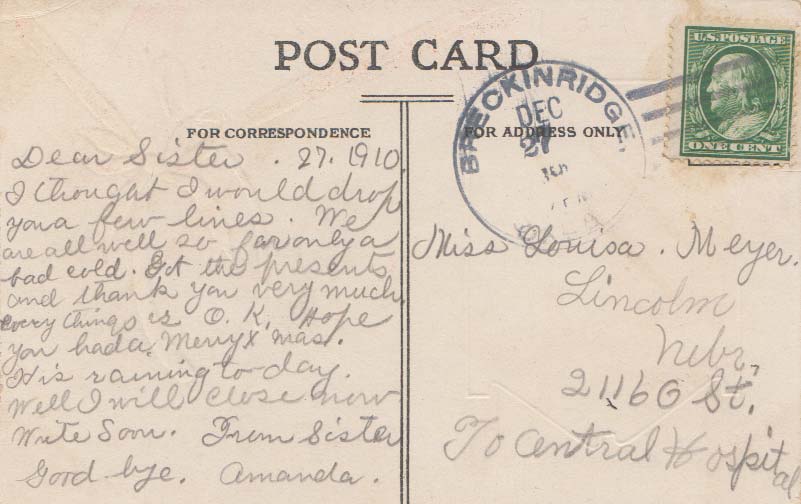 POST CARD
FOR CORRESPONDENCE
FOR ADDRESS ONLY
U.S. POSTAGE
ONE CENT
BRECKINRIDGE,
DEC
27
Dear Sister . 27. 1910.
I thought I would drop
you a few lines. We
are all well so far only a
bad cold. Got the presents
and thank you very much.
every things is O. K. Hope
you had a Merry X mas.
It is raining to day.
Well I will close now
Write Soon. From Sister
Good bye. Amanda.
Miss Louisa. Meyer.
Lincolm
Nebr,
2116 O St.
To Central Hospital